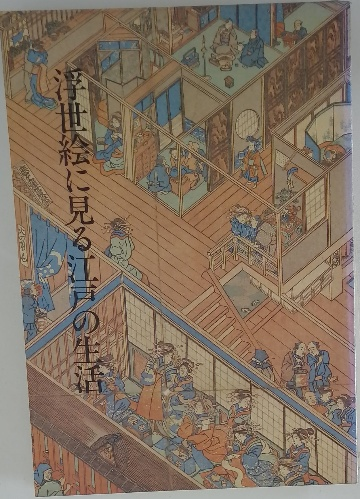 浮世絵に見る江戸の生活